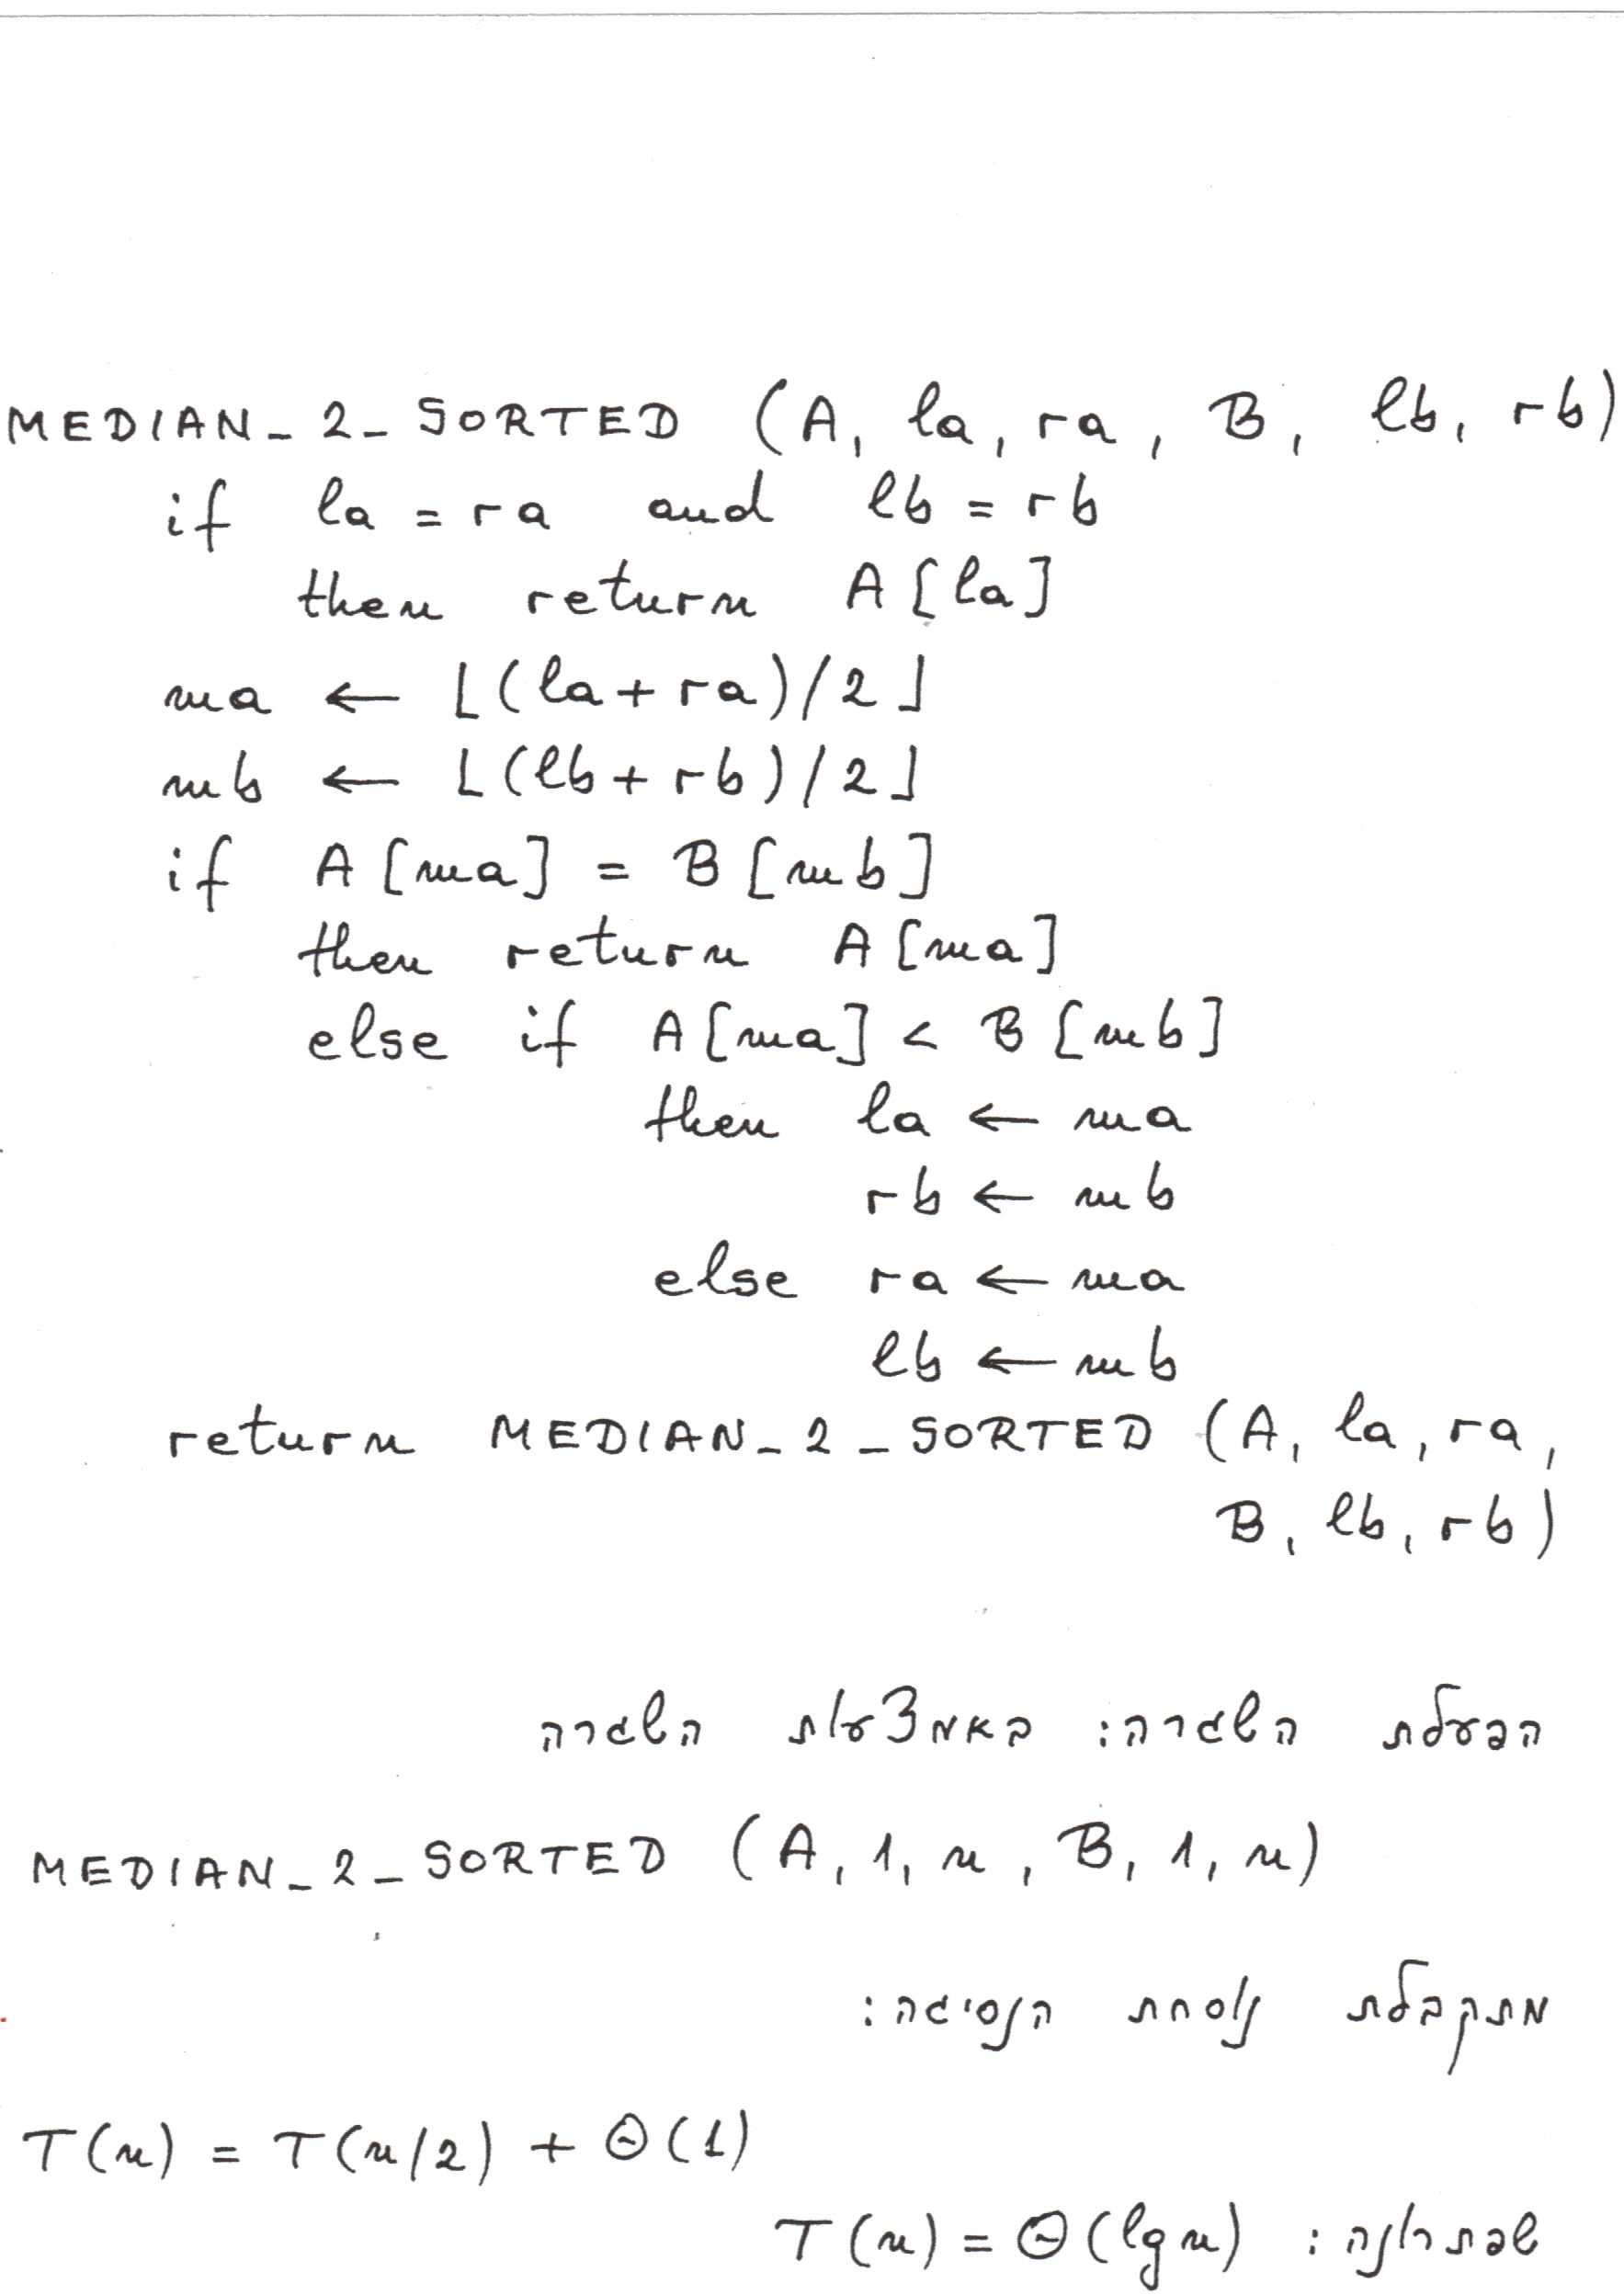 MEDIAN_2_SORTED (A, la, ra, B, lb, rb)
if la = ra and lb = rb
then return A[la]
ma ← ⌊(la+ra)/2⌋
mb ← ⌊(lb+rb)/2⌋
if A[ma] = B[mb]
then return A[ma]
else if A[ma] < B[mb]
then la ← ma
rb ← mb
else ra ← ma
lb ← mb
return MEDIAN_2_SORTED (A, la, ra,
B, lb, rb)
הפעלת השגרה: באמצעות השגרה
MEDIAN_2_SORTED (A, 1, n, B, 1, n)
מתקבלת נוסחת הנסיגה:
T(n) = T(n/2) + Θ(1)
שפתרונה: T(n) = Θ(lg n)